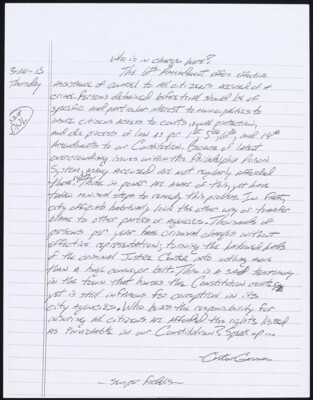 Who is in charge here?
3-26-15
Thursday
The 6th Amendment offers effective
assistance of counsel to all citizens accused of a
crime. Persons detained before trial should be of
specific and particular interest to municipalities to
insure citizens access to courts, equal protection,
and due process of law as per 1st, 5th, 6th, and 14th
Amendments to our Constitution. Because of latent
overcrowding issues within the Philadelphia Prison
System, many accused are not regularly afforded
these. Those in power are aware of this, yet have
taken minimal steps to remedy this problem. In fact,
city officials habitually look the other way or transfer
blame to other parties or agencies. Thousands of
persons per year face criminal charges without
effective representation; turning the hallowed halls
of the Criminal Justice Center into nothing more
than a huge conveyor belt. This is a sad testimony
in the town that houses the Constitution Center,
yet is still infamous for corruption in its
city agencies. Who bears the responsibility for
insuring all citizens are afforded the rights listed
as privileges in our Constitution? Speak up...